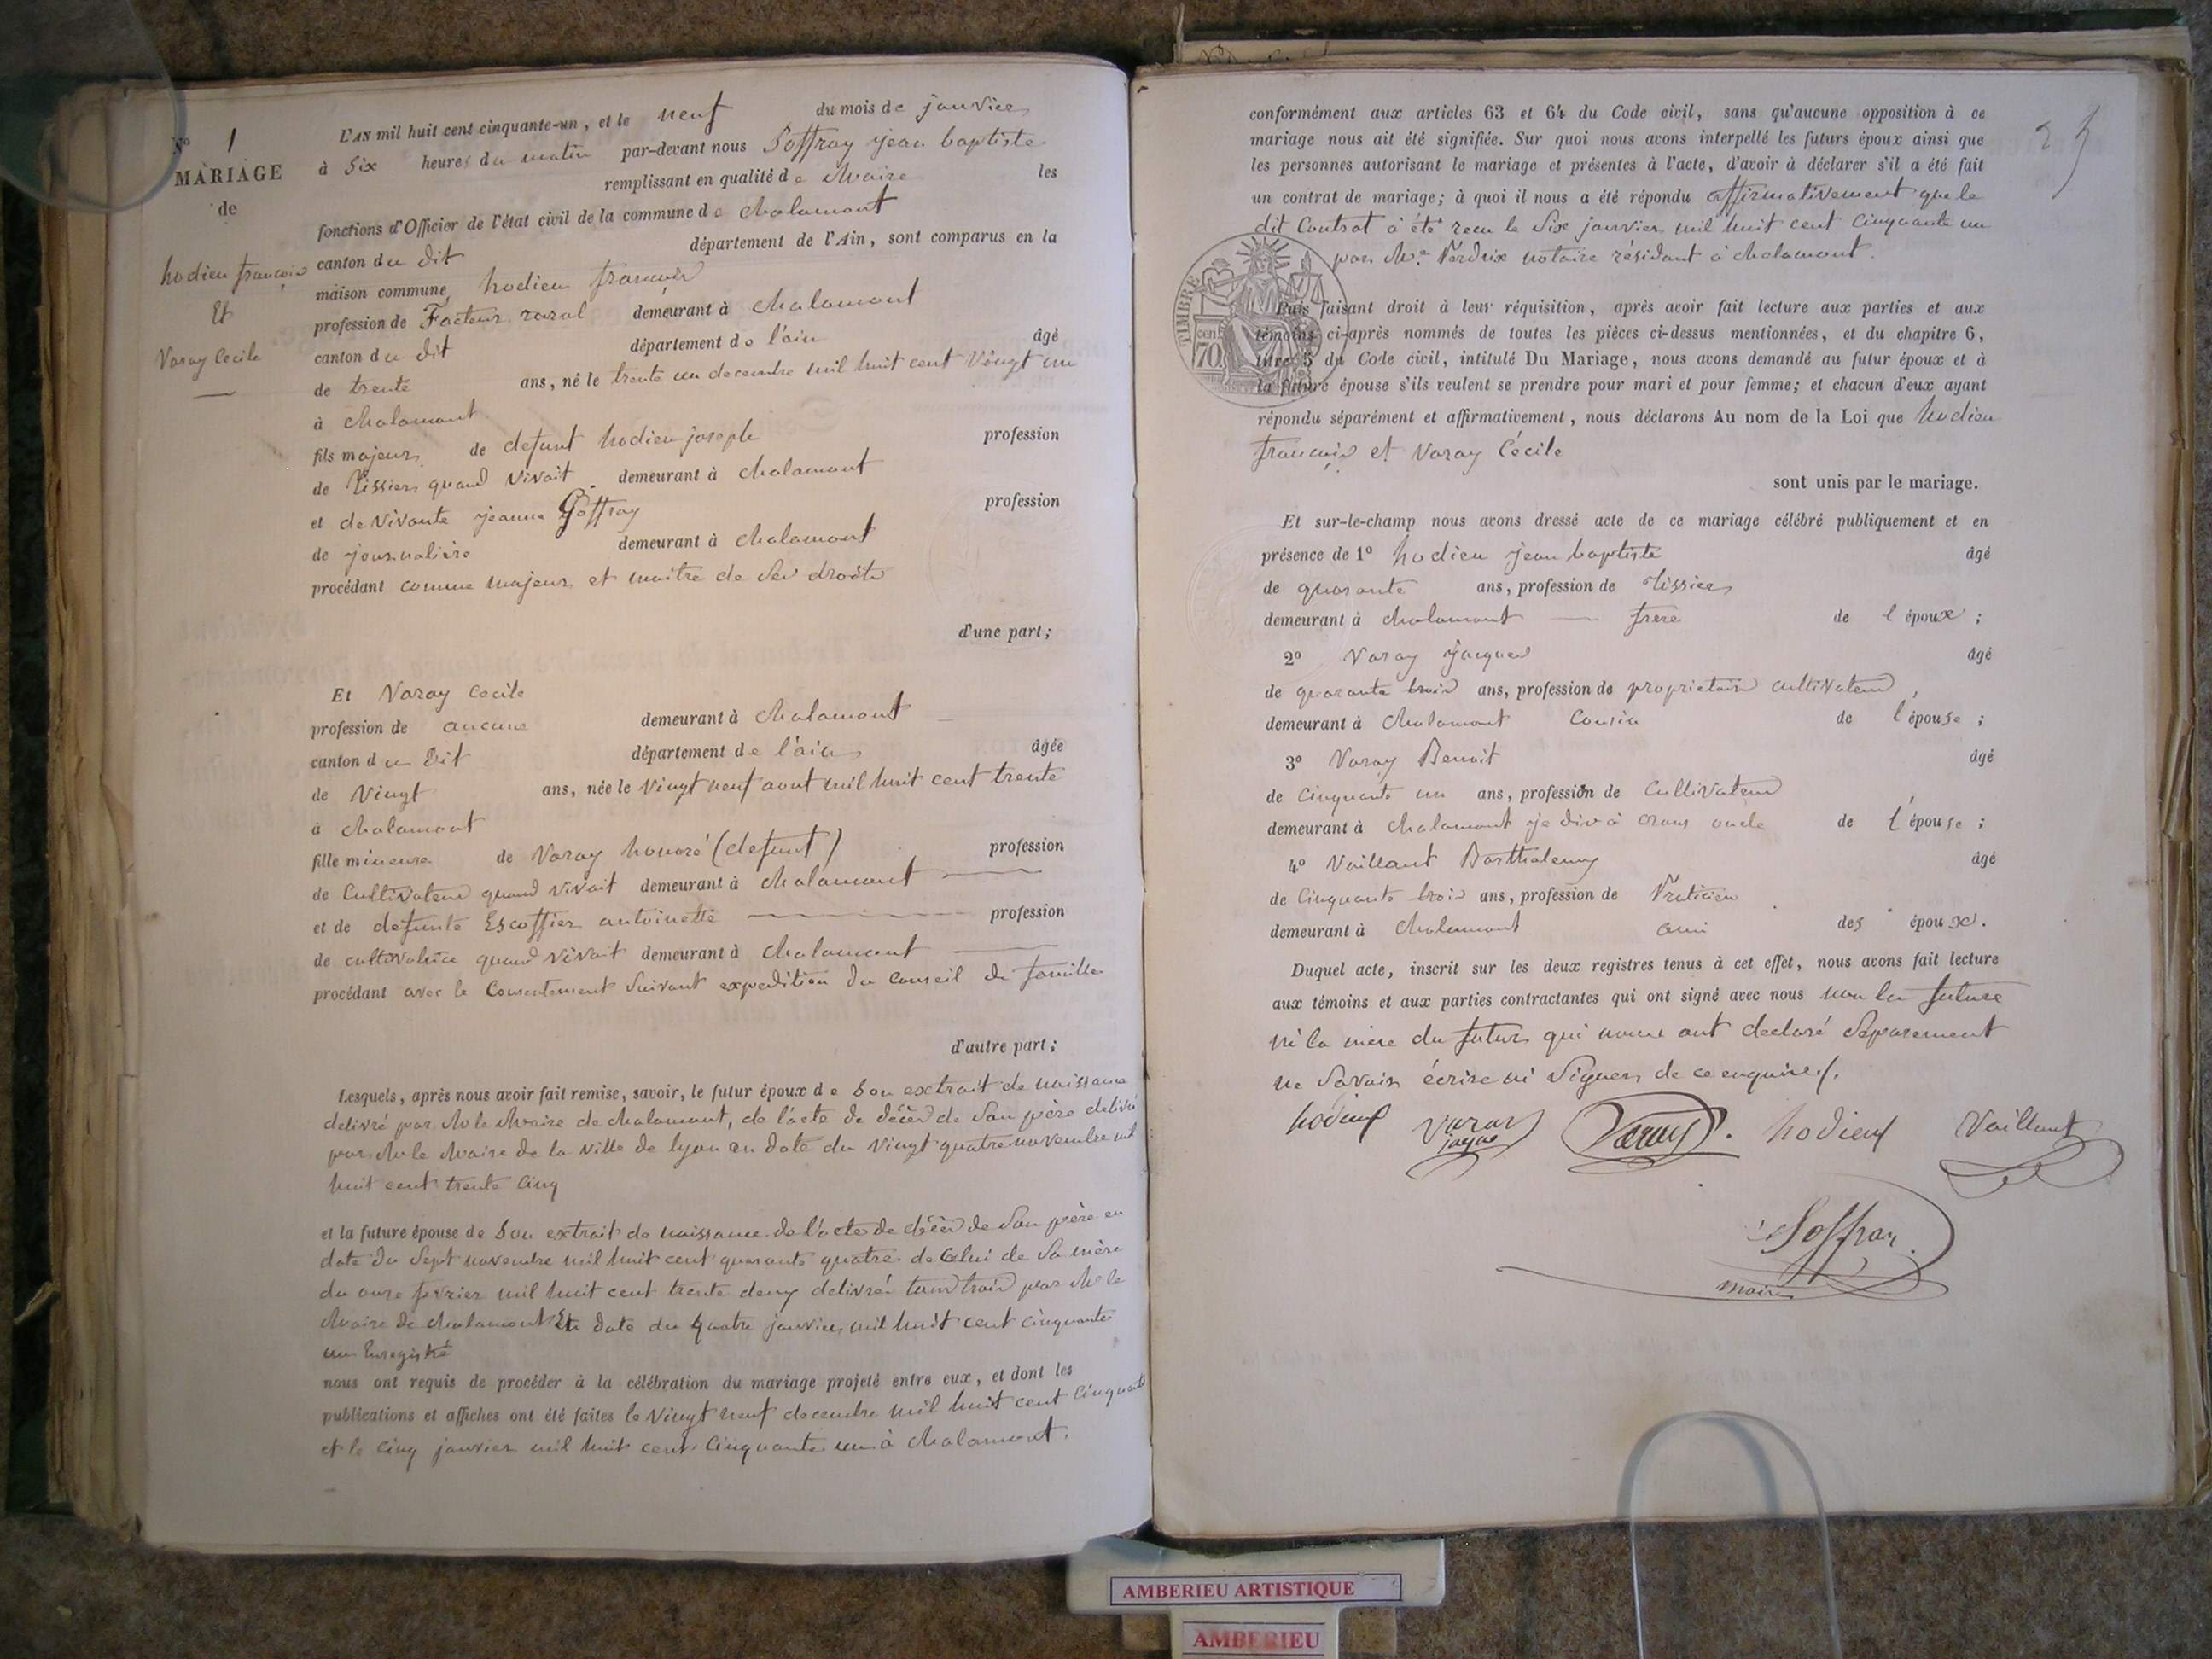 N° 1
MARIAGE
de
hodieu françois
Et
Varay Cecile
L'AN mil huit cent cinquante-un, et le neuf du mois de janvier
à Six heures du matin par-devant nous Soffray jean baptiste
remplissant en qualité de Maire les
fonctions d'Officier de l'état civil de la commune de chalamont
canton du dit département de l'Ain, sont comparus en la
maison commune, hodieu françois
profession de Facteur rural demeurant à chalamont
canton du dit département de l'ain âgé
de trente ans, né le trente un decembre mil huit cent Vingt un
à chalamont
fils majeur de defunt hodieu joseph profession
de Tissier quand vivait demeurant à chalamont
et de vivante jeanne Goffray profession
de journalière demeurant à chalamont
procédant comme majeur et maitre de ses droits
d'une part;
Et Varay Cecile
profession de aucune demeurant à chalamont
canton du dit département de l'ain âgée
de Vingt ans, née le Vingt neuf aout mil huit cent trente
à chalamont
fille mineure de Varay honoré (defunt) profession
de Cultivateur quand vivait demeurant à chalamont
et de defunte Escoffier antoinette profession
de cultivatrice quand vivait demeurant à chalamont
procédant avec le Consentement Suivant expedition du Conseil de famille
d'autre part;
Lesquels, après nous avoir fait remise, savoir, le futur époux de Son extrait de naissance
delivré par Mr le Maire de chalamont, de l'acte de décès de Son père delivré
par Mr le Maire de la ville de lyon en date du Vingt quatre novembre mil
huit cent trente Cinq
et la future épouse de Son extrait de naissance de l'acte de décès de Son père en
date du Sept novembre mil huit cent quarante quatre de Celui de Sa mère
du onze fevrier mil huit cent trente deux delivrés tous trois par Mr le
Maire de chalamont En date du quatre janvier mil huit cent cinquante
un Enregistré
nous ont requis de procéder à la célébration du mariage projeté entre eux, et dont les
publications et affiches ont été faites le Vingt neuf decembre mil huit cent Cinquante
et le Cinq janvier mil huit cent Cinquante un à chalamont.
25
conformément aux articles 63 et 64 du Code civil, sans qu'aucune opposition à ce
mariage nous ait été signifiée. Sur quoi nous avons interpellé les futurs époux ainsi que
les personnes autorisant le mariage et présentes à l'acte, d'avoir à déclarer s'il a été fait
un contrat de mariage; à quoi il nous a été répondu affirmativement que le
dit Contrat à été recu le Six janvier mil huit cent Cinquante un
par Me Verdrix notaire résidant à chalamont.
TIMBRE
cent
70
Puis faisant droit à leur réquisition, après avoir fait lecture aux parties et aux
témoins ci-après nommés de toutes les pièces ci-dessus mentionnées, et du chapitre 6,
titre 5 du Code civil, intitulé Du Mariage, nous avons demandé au futur époux et à
la future épouse s'ils veulent se prendre pour mari et pour femme; et chacun d'eux ayant
répondu séparément et affirmativement, nous déclarons Au nom de la Loi que hodieu
françois et Varay Cécile
sont unis par le mariage.
Et sur-le-champ nous avons dressé acte de ce mariage célébré publiquement et en
présence de 1° hodieu jean baptiste âgé
de quarante ans, profession de Tissier
demeurant à chalamont frere de l'époux;
2° Varay jacques âgé
de quarante trois ans, profession de proprietaire cultivateur,
demeurant à chalamont Cousin de l'épouse;
3° Varay Benoit âgé
de Cinquante un ans, profession de Cultivateur
demeurant à chalamont je dis à Crans oncle de l'épouse;
4° Vaillant Barthelemy âgé
de Cinquante trois ans, profession de Praticien
demeurant à chalamont ami des époux.
Duquel acte, inscrit sur les deux registres tenus à cet effet, nous avons fait lecture
aux témoins et aux parties contractantes qui ont signé avec nous non la future
ni la mère du futur qui nous ont declaré Separement
ne Savoir écrire ni Signer de ce enquises.
hodieu Varay jaque Varay. hodieu Vaillant
Soffray
maire
AMBERIEU ARTISTIQUE
AMBERIEU